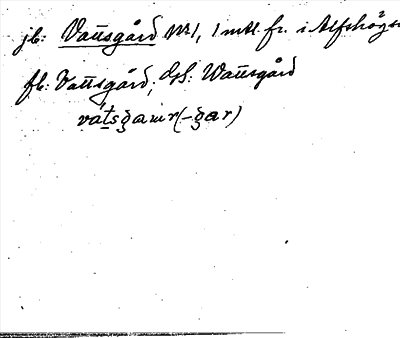 jb: Vannsgård Nr 1, 1 mtl. fr. i Alfshögs
fb: Vannsgård; Gsk: Wannsgård
vátsgamr (-gar)